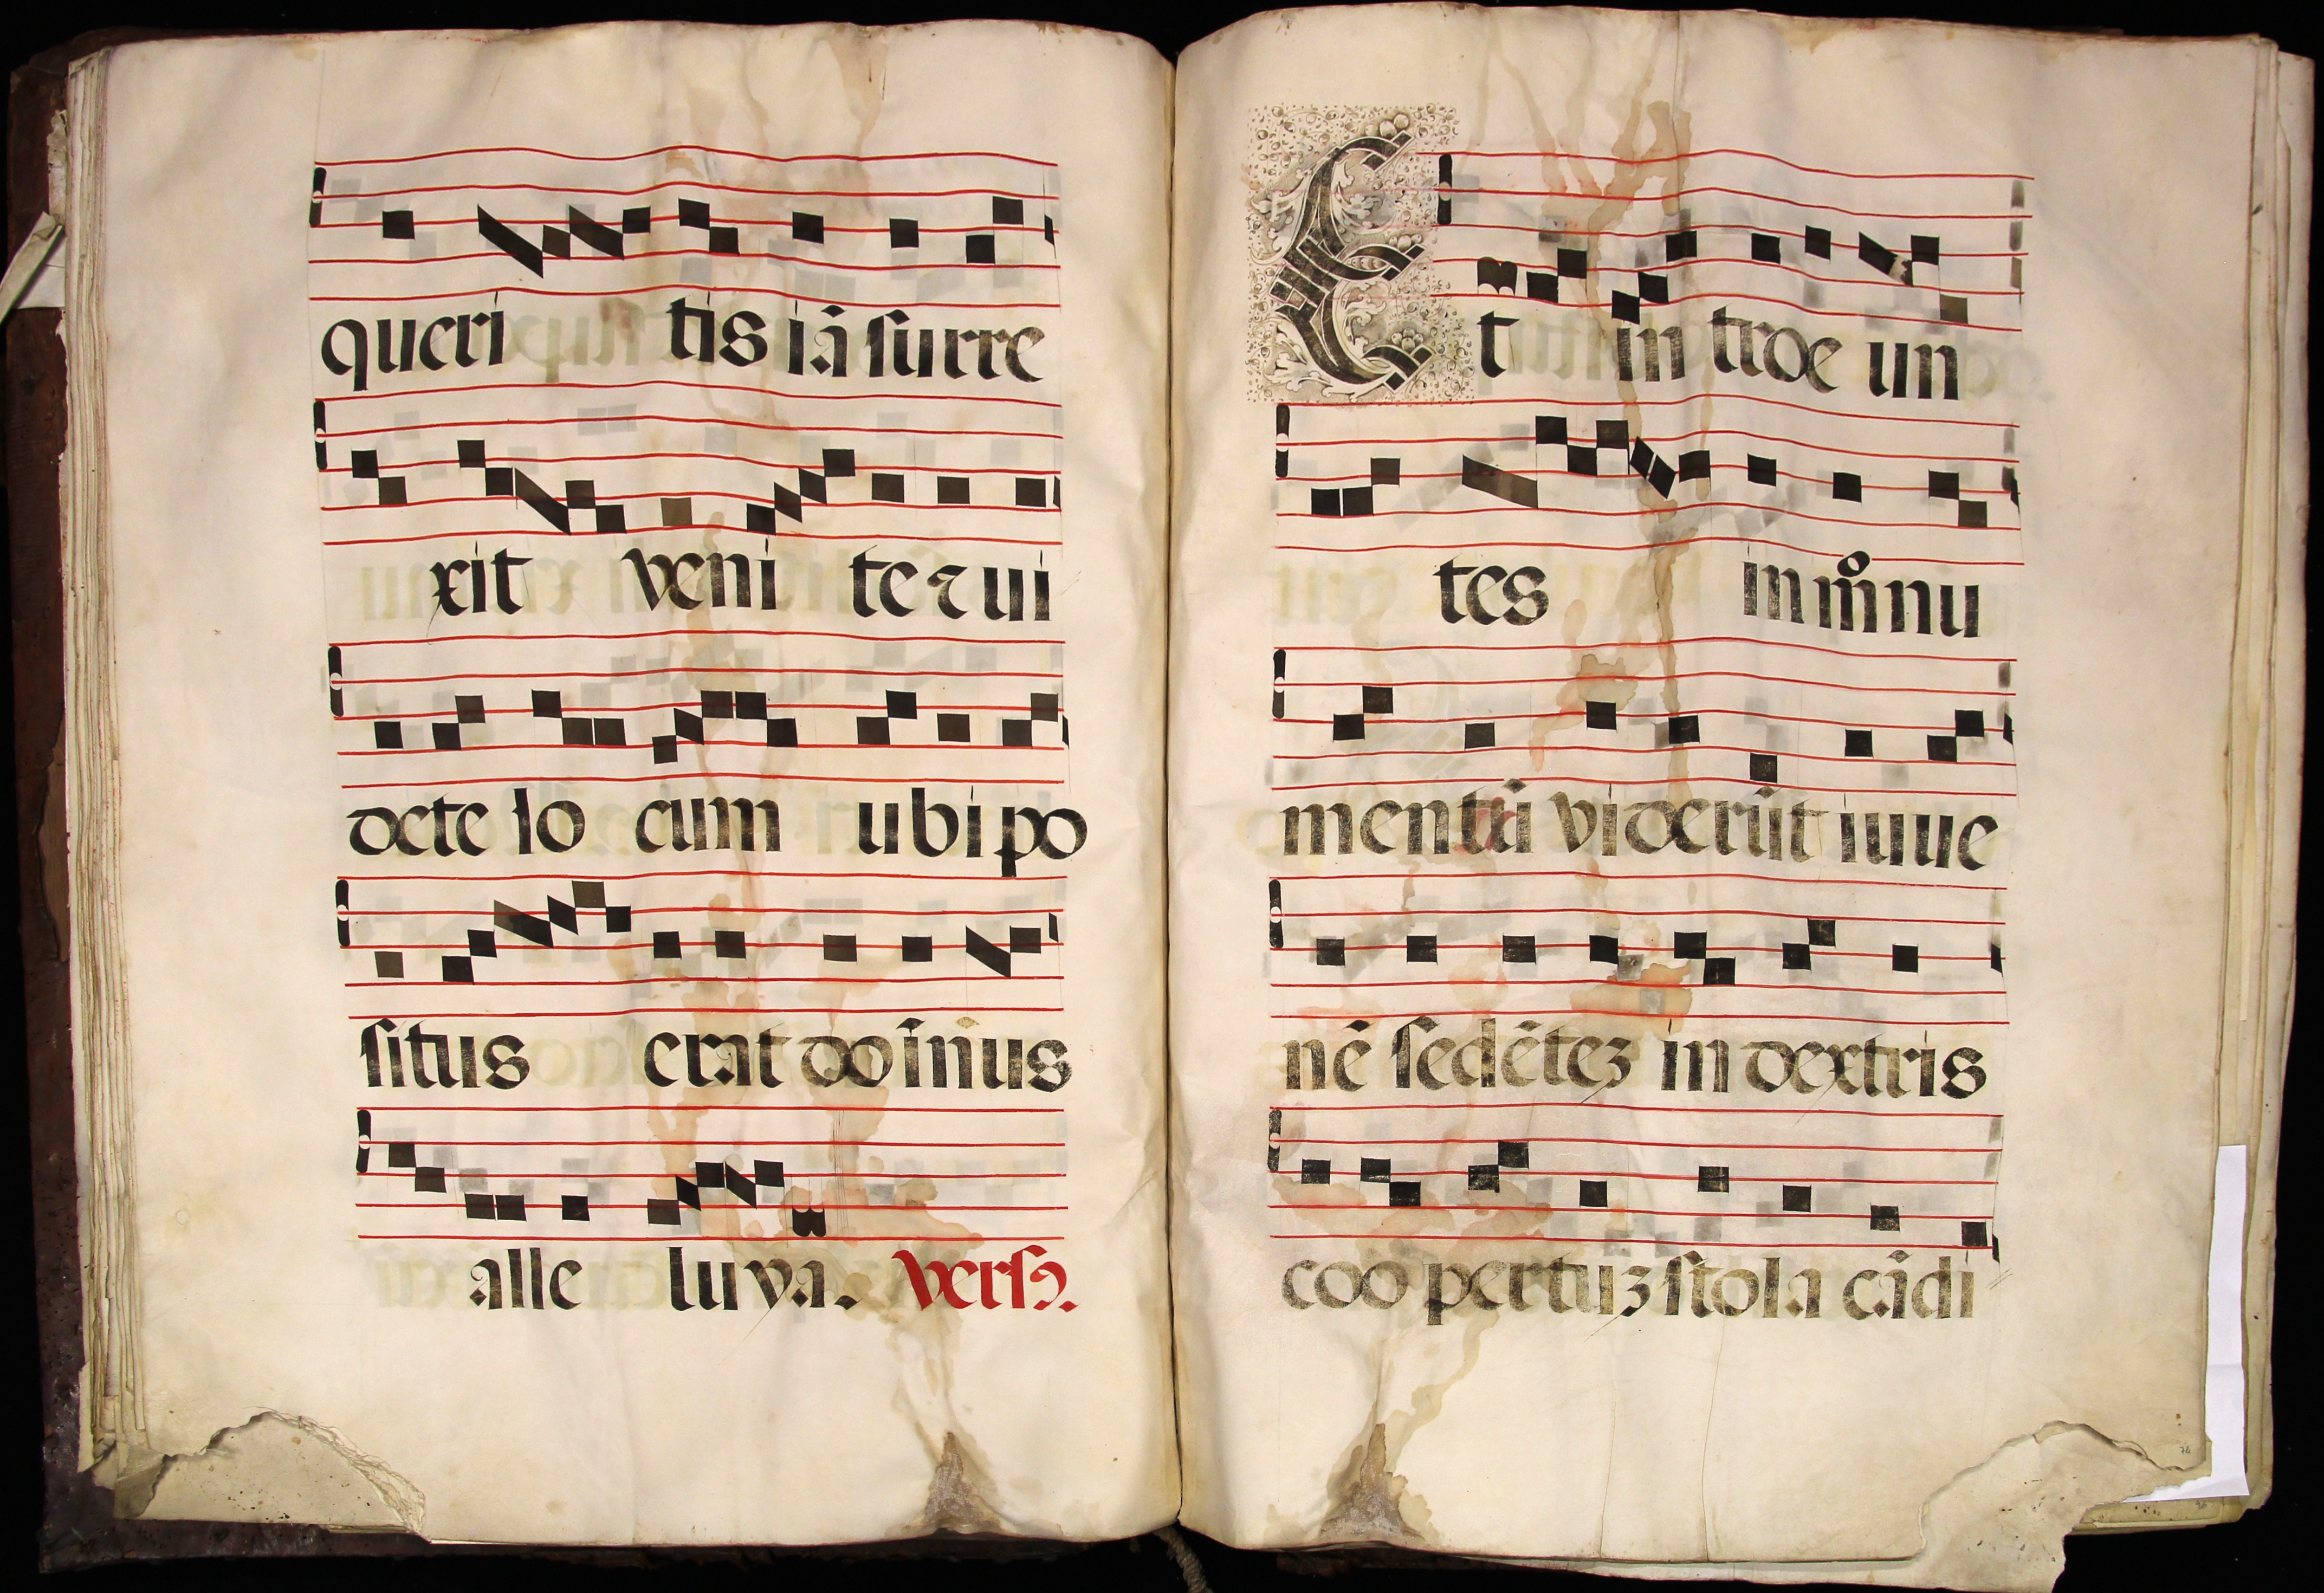 queri tis iā surre
xit veni te ⁊ ui
dete lo cum ubi po
situs erat do īnus
alle luya. versꝰ.
Et in troe un
tes in mͦnu
mentū viderūt iuue
nē sedētez in dextris
coo pertuz stola cādi
76